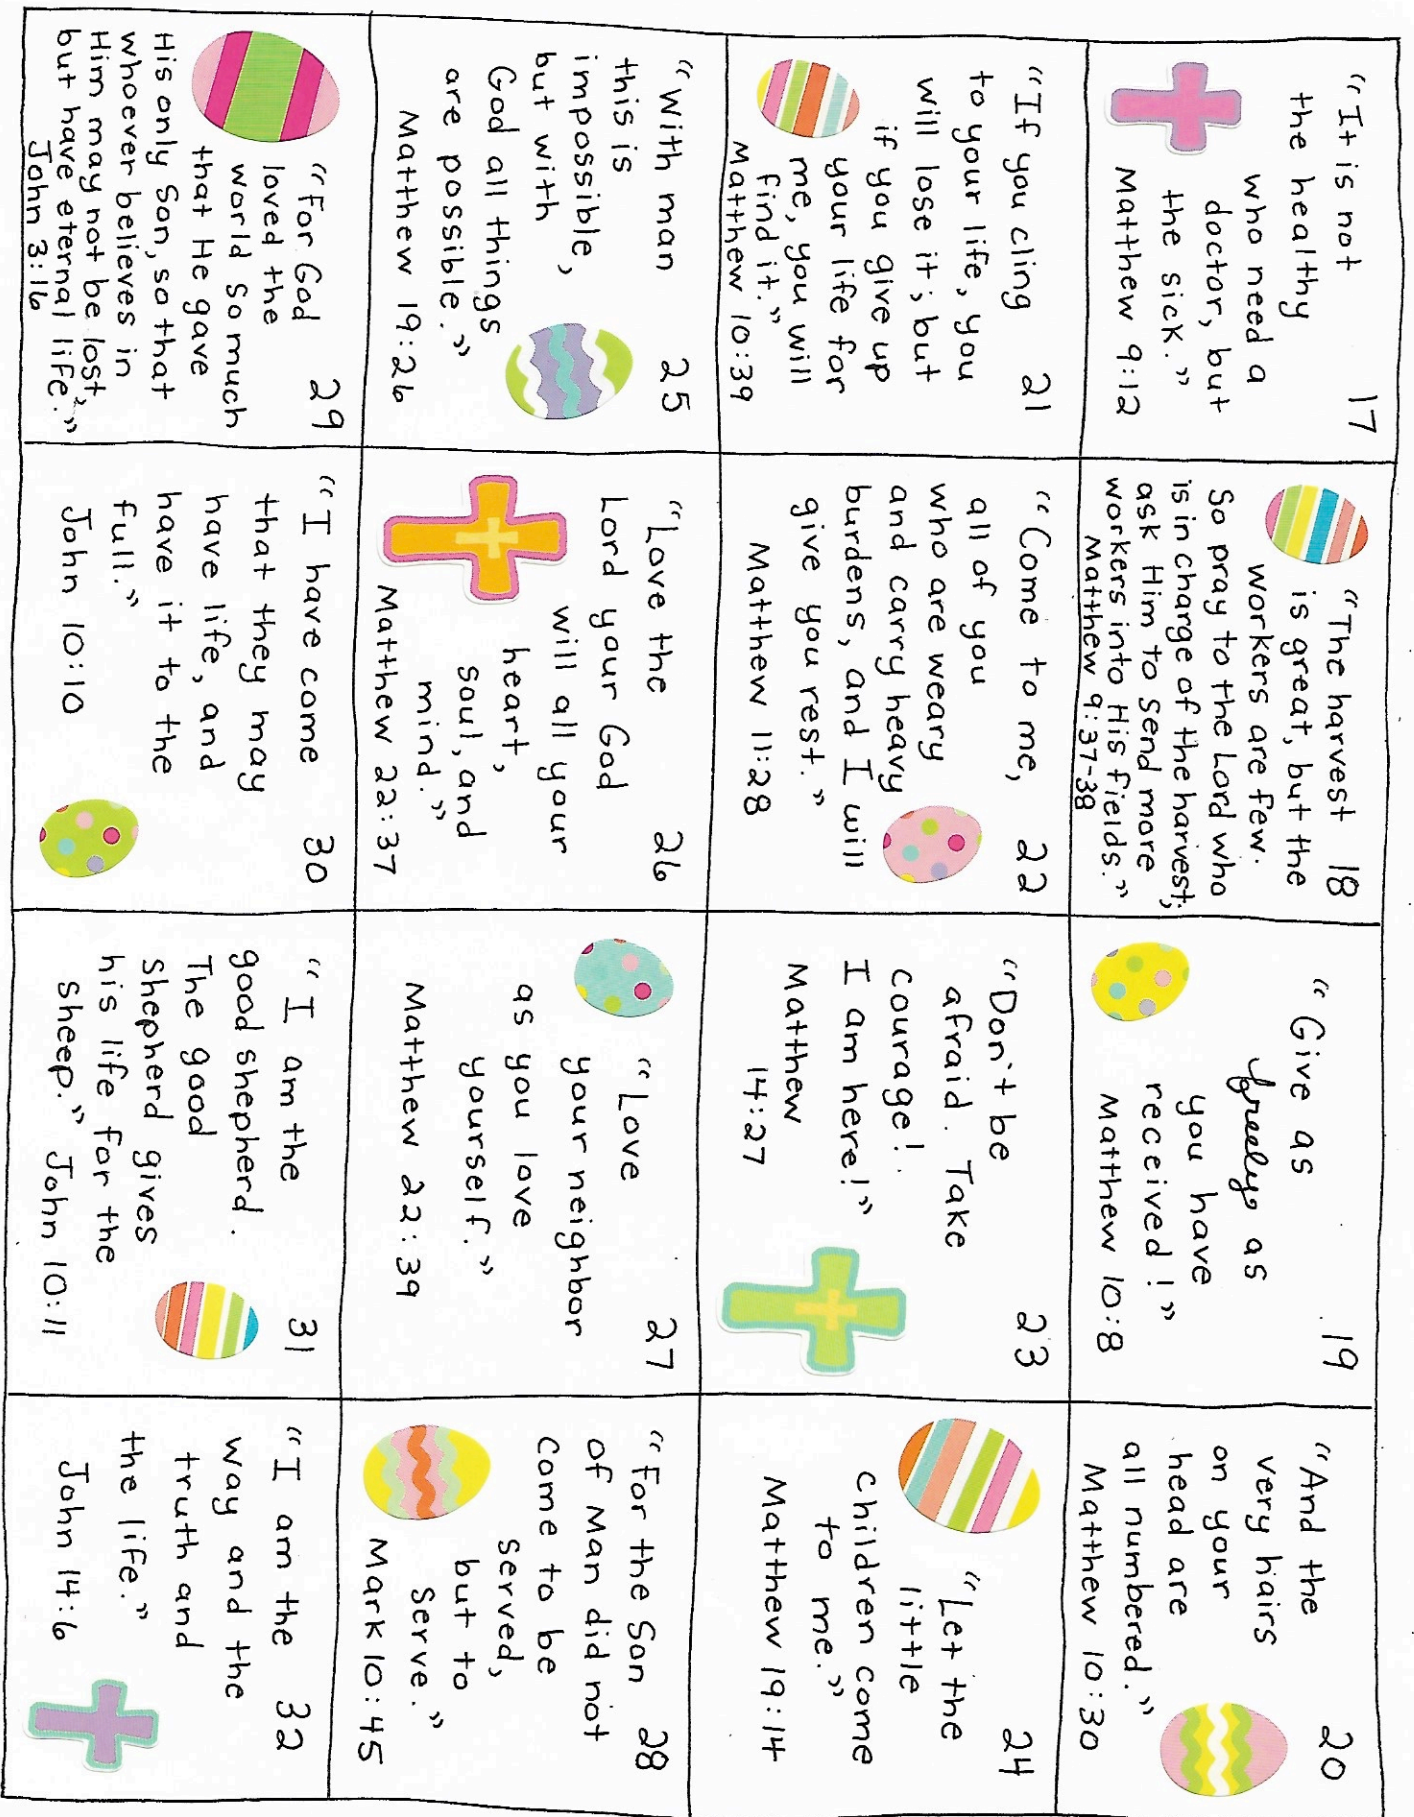 "It is not 17
the healthy
who need a
doctor, but
the sick."
Matthew 9:12
"The harvest 18
is great, but the
workers are few.
So pray to the Lord who
is in charge of the harvest;
ask Him to send more
workers into His fields."
Matthew 9:37-38
"Give as 19
freely as
you have
received!"
Matthew 10:8
"And the 20
very hairs
on your
head are
all numbered."
Matthew 10:30
"If you cling 21
to your life, you
will lose it; but
if you give up
your life for
me, you will
find it."
Matthew 10:39
"Come to me, 22
all of you
who are weary
and carry heavy
burdens, and I will
give you rest."
Matthew 11:28
"Don't be 23
afraid. Take
courage!
I am here!"
Matthew
14:27
"Let the 24
little
children come
to me."
Matthew 19:14
"With man 25
this is
impossible,
but with
God all things
are possible."
Matthew 19:26
"Love the 26
Lord your God
will all your
heart,
soul, and
mind."
Matthew 22:37
"Love 27
your neighbor
as you love
yourself."
Matthew 22:39
"For the Son 28
of Man did not
come to be
served,
but to
serve."
Mark 10:45
"For God 29
loved the
world so much
that He gave
His only Son, so that
whoever believes in
Him may not be lost,
but have eternal life."
John 3:16
"I have come 30
that they may
have life, and
have it to the
full."
John 10:10
"I am the 31
good shepherd.
The good
shepherd gives
his life for the
sheep." John 10:11
"I am the 32
way and the
truth and
the life."
John 14:6